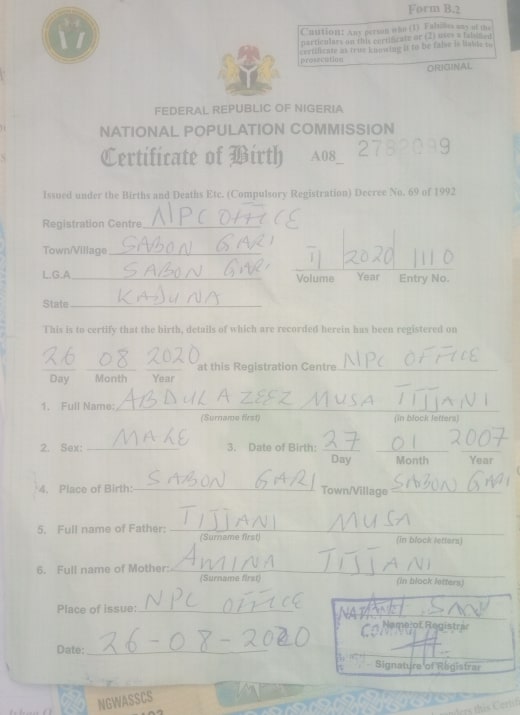 Form B.2
Caution: Any person who (1) Falsifies any of the
particulars on this certificate or (2) uses a falsified
certificate as true knowing it to be false is liable to
prosecution
ORIGINAL
FEDERAL REPUBLIC OF NIGERIA
NATIONAL POPULATION COMMISSION
Certificate of Birth A08_ 2782099
Issued under the Births and Deaths Etc. (Compulsory Registration) Decree No. 69 of 1992
Registration Centre NPC OFFICE
Town/Village SABON GARI
L.G.A SABON GARI
II 2020 1110
Volume Year Entry No.
State KADUNA
This is to certify that the birth, details of which are recorded herein has been registered on
26 08 2020 at this Registration Centre NPC OFFICE
Day Month Year
1. Full Name: ABDULAZEEZ MUSA TIJJANI
(Surname first) (in block letters)
2. Sex: MALE 3. Date of Birth: 27 01 2007
Day Month Year
4. Place of Birth: SABON GARI Town/Village SABON GARI
5. Full name of Father: TIJJANI MUSA
(Surname first) (in block letters)
6. Full name of Mother: AMINA TIJJANI
(Surname first) (in block letters)
Place of issue: NPC OFFICE
Name of Registrar
Date: 26-08-2020
Signature of Registrar
NGWASSCS